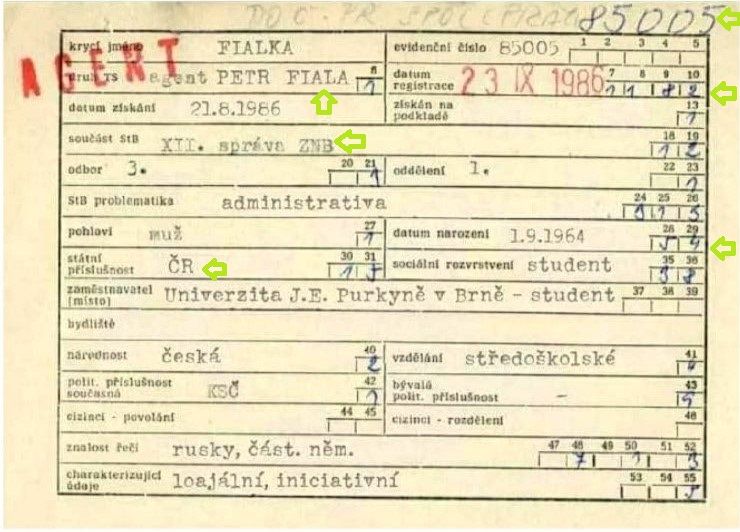 85005
AGENT
krycí jméno FIALKA evidenční číslo 85005 1 2 3 4 5
druh TS agent PETR FIALA 6 1 datum registrace 23 IX 1986 7 8 9 10
datum získání 21.8.1986 získán na podkladě 13 1
součást StB XII. správa ZNB 18 19 1 2
odbor 3. 20 21 1 oddělení 1. 22 23 1
StB problematika administrativa 24 25 26
pohlaví muž 27 1 datum narození 1.9.1964 28 29 5 4
státní příslušnost ČR 30 31 sociální rozvrstvení student 35 36 3 8
zaměstnavatel (místo) Univerzita J.E. Purkyně v Brně - student 37 38 39
bydliště
národnost česká 40 2 vzdělání středoškolské 41
polit. příslušnost současná KSČ 42 1 bývalá polit. příslušnost - 43
cizinci - povolání 44 45 cizinci - rozdělení 46
znalost řečí rusky, část. něm. 47 48 49 50 51 52 7 1 3
charakterizující údaje loajální, iniciativní 53 54 55